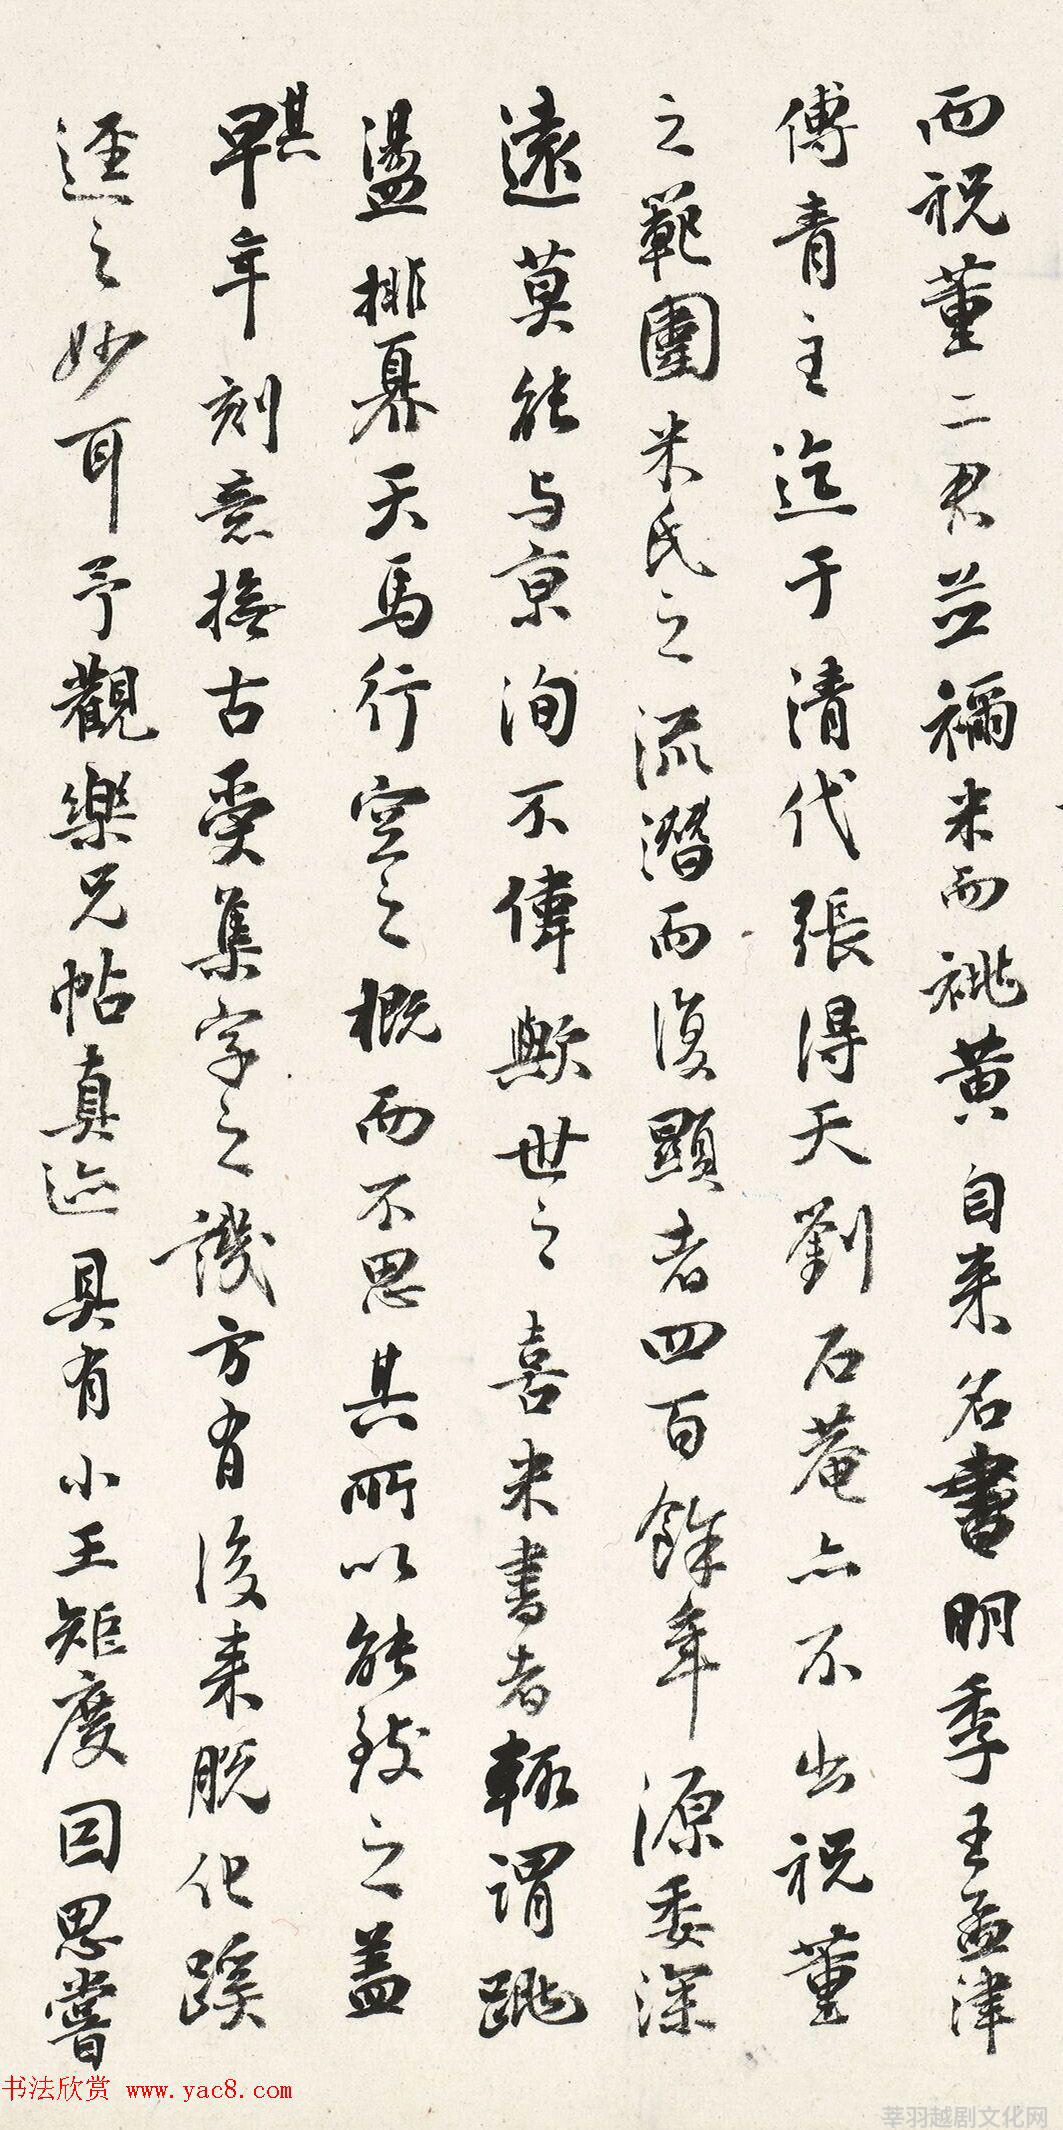 而祝董二君並禰米而祧黄自来名書明季王孟津
傅青主迄于清代張得天劉石菴亦不出祝董
之範圍米氏之流潛而復顯者四百餘年源委深
遠莫能与京洵不偉歟世之喜米書者輒謂跳
盪排奡天馬行空之概而不思其所以能致之蓋
其早年刻意撫古受集字之譏方有後来脱化蹊
逕之妙耳予觀樂兄帖真迹具有小王矩度因思嘗
书法欣赏 www.yac8.com
莘羽越剧文化网